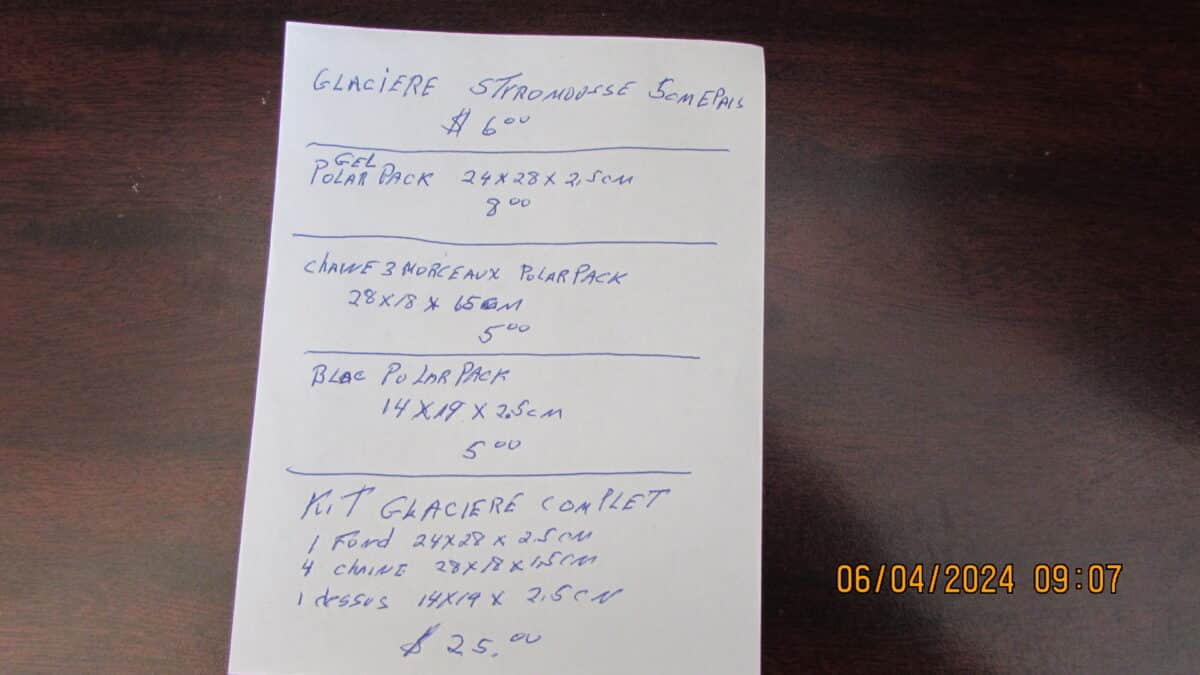 GLACIERE STYROMOUSSE 5CM EPAIS
$ 6.00
GEL
POLAR PACK 24X28X2,5CM
8.00
CHAINE 3 MORCEAUX POLARPACK
28X18X 1.5CM
5.00
BLOC POLARPACK
14X19X2.5CM
5.00
KIT GLACIERE COMPLET
1 Fond 24X28X2.5CM
4 CHAINE 28X18X1.5CM
1 dessus 14X19X 2.5CM
$ 25.00
06/04/2024 09:07